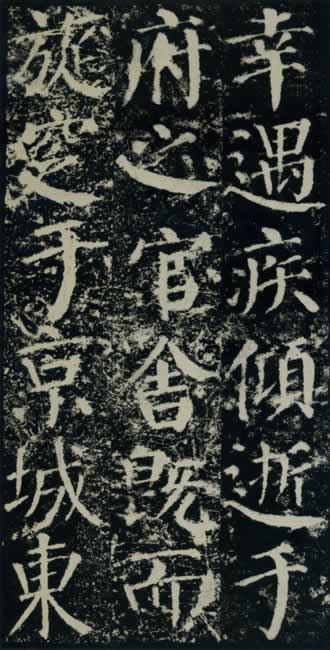 幸遇疾傾逝于
府之官舍既而
旋窆于京城東